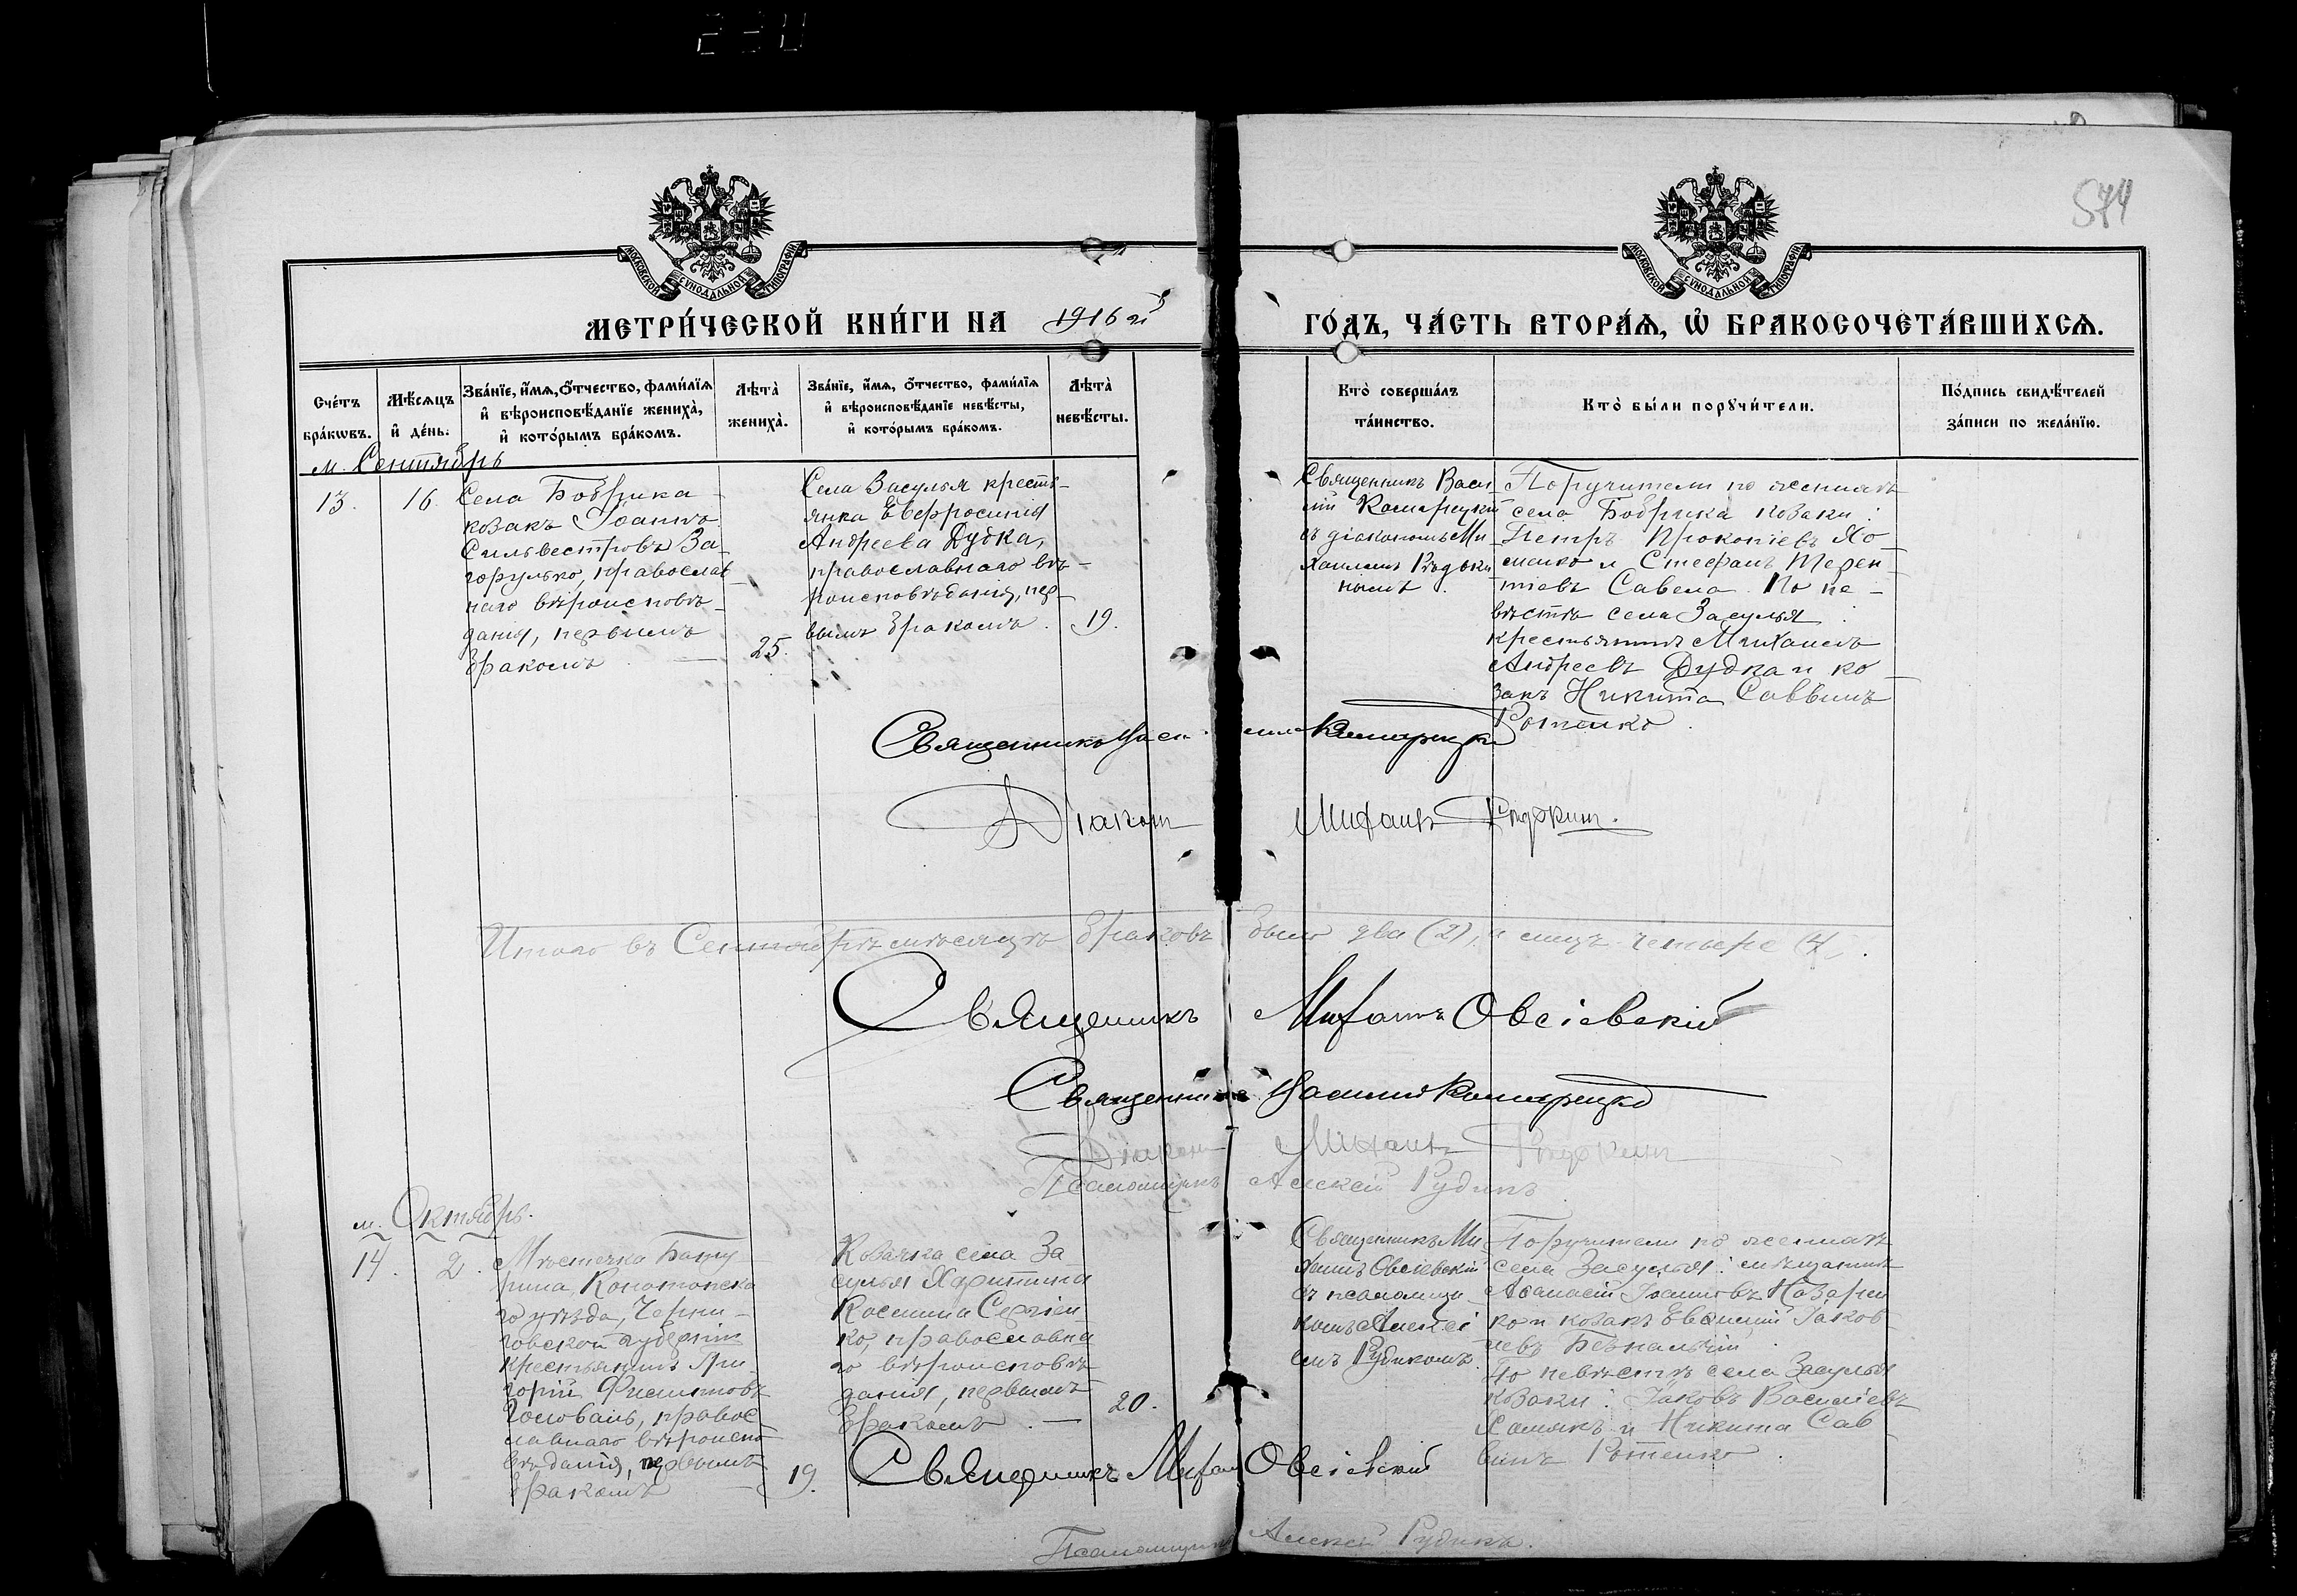 574
МОСКОВСКОЙ СУНОДАЛЬНОЙ ТИПОГРАФІИ
МОСКОВСКОЙ СУНОДАЛЬНОЙ ТИПОГРАФІИ
МЕТРИ́ЧЕСКОЙ КНИ́ГИ НА 1916 й
ГО́ДЪ, ЧА́СТЬ ВТОРА́Ѧ, Ѡ҆ БРАКОСОЧЕТА́ВШИХСѦ.
Сче́тъ
бра́кѡвъ.
Мѣ́сѧцъ
и҆ де́нь.
Зва́нїе, и҆́мѧ, ѻ҆́тчество, фами́лїѧ
и҆ вѣроисповѣ́данїе жениха̀,
и҆ кото́рымъ бра́комъ.
Лѣ́та̀
жениха̀.
Зва́нїе, и҆́мѧ, ѻ҆́тчество, фами́лїѧ
и҆ вѣроисповѣ́данїе невѣ́сты,
и҆ кото́рымъ бра́комъ.
Лѣ́та̀
невѣ́сты.
Кто̀ соверша́лъ
та́инство.
Кто̀ бы́ли порꙋчи́тели.
По́дпись свидѣ́телей
за́писи по жела́нїю.
м. Сентябрь
13.
16.
Села Бобрика
козакъ Іоаннъ
Сильвестровъ За-
горулько, православ-
наго вѣроисповѣ-
данія, первымъ
бракомъ
25.
Села Засулья кресть-
янка Евфросинія
Андреева Дудка,
православнаго вѣ-
роисповѣданія, пер-
вымъ бракомъ.
19.
Священникъ Васи-
лій
съ діакономъ Ми-
хаиломъ
Поручители по женихѣ
села Бобрика козаки:
Петръ Прокопіевъ Хо-
менко и Стефанъ Терен-
тіевъ Савела. По не-
вѣстѣ села Засулья
крестьянинъ Михаилъ
Андреевъ Дудка и ко-
закъ Никита Саввинъ
Ротенко.
Священникъ Василій
Діаконъ Михаилъ
Итого въ Сентябрѣ мѣсяцѣ браковъ было два (2), а лицъ четыре (4).
Священникъ Михаилъ Овсіевскій
Священникъ Василій
Діаконъ Михаилъ
Псаломщикъ Алексій Рудикъ
м. Октябрь.
14.
2.
Мѣстечка Бату-
рина, Конотопска-
го уѣзда, Черни-
говской губерніи
крестьянинъ Гри-
горій Филиповъ
Головань, правос-
лавнаго вѣроиспо-
вѣданія, первымъ
бракомъ
19.
Козачка села За-
сулья Харитина
Космина Сергіен-
ко, православна-
го вѣроисповѣ-
данія, первымъ
бракомъ. —
20.
Священникъ Ми-
хаилъ Овсіевскій
съ псаломщи-
комъ Алексі-
емъ Рудикомъ.
Поручители по женихѣ
села Засулья: мѣщанинъ
Аѳанасій Іоанновъ Назарен-
ко и козакъ Евѳимій Іаков-
левъ Безпальчій.
По невѣстѣ села Засулья
козаки: Іаковъ Василіевъ
Хоменко и Никита Сав-
винъ Ротенко.
Священникъ Михаилъ Овсіевскій
Псаломщикъ Алексій Рудикъ.